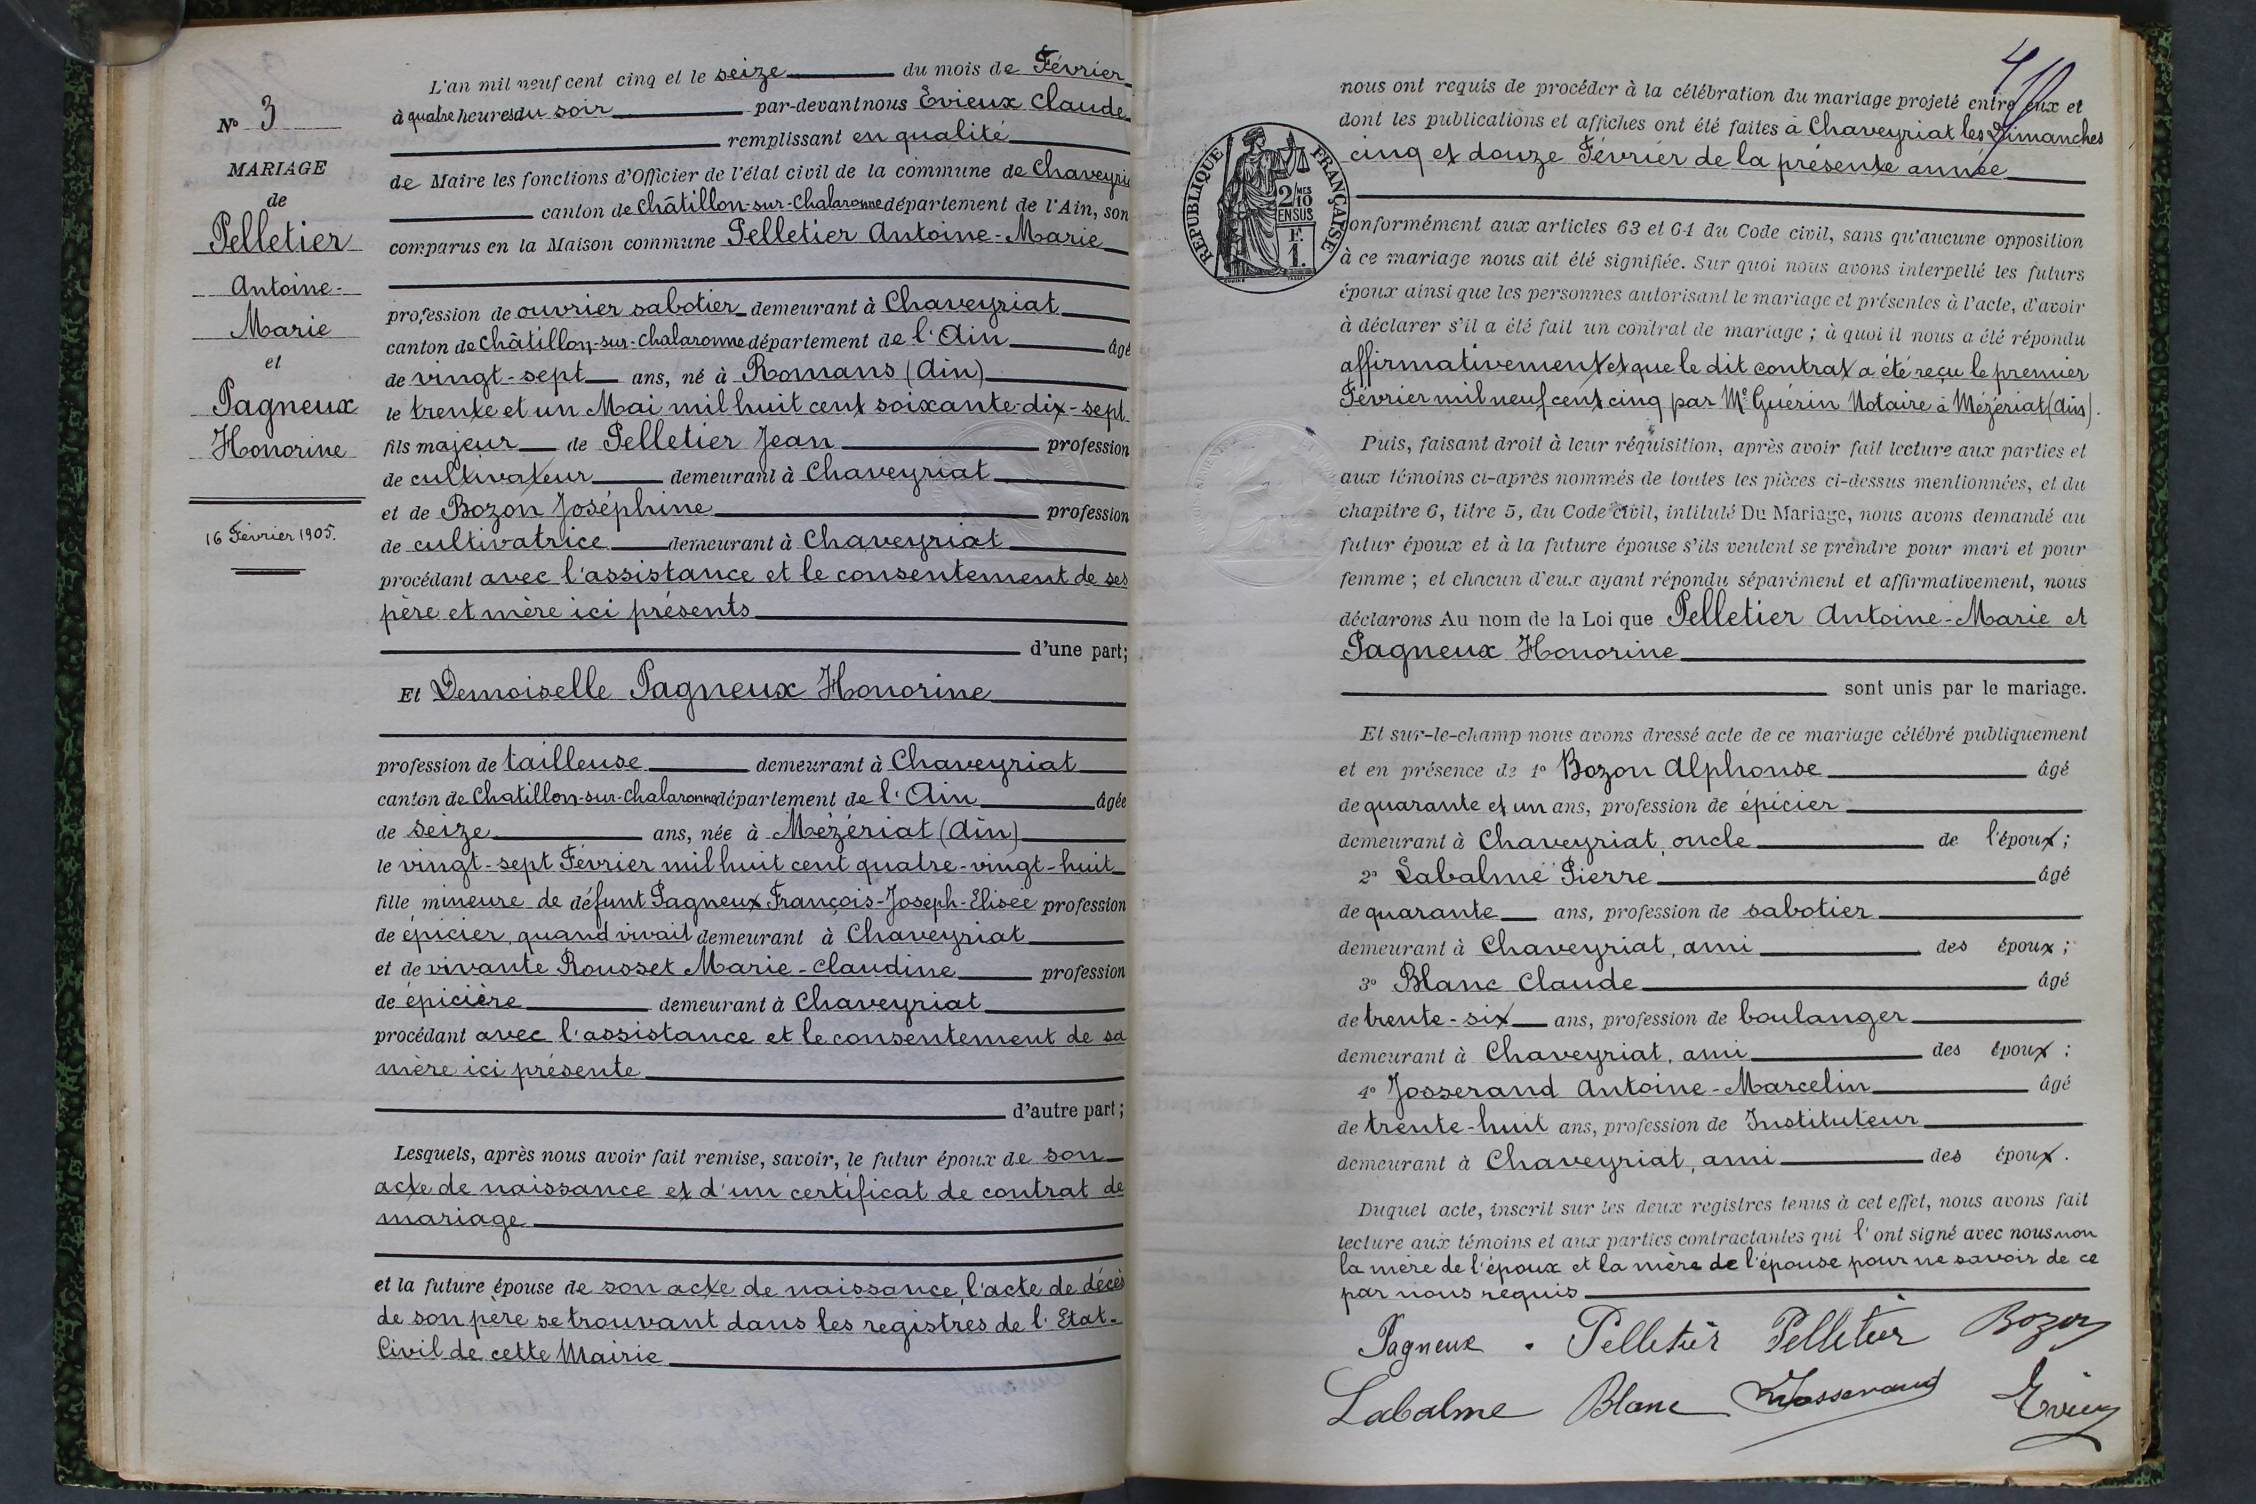 L'an mil neuf cent cinq et le seize du mois de Février
à quatre heures du soir par-devant nous Evieux Claude
remplissant en qualité
de Maire les fonctions d'Officier de l'état civil de la commune de Chaveyri
canton de Châtillon-sur-Chalaronne département de l'Ain, son
comparus en la Maison commune Pelletier Antoine-Marie
profession de ouvrier sabotier demeurant à Chaveyriat
canton de Châtillon-sur-Chalaronne département de l'Ain âgé
de vingt-sept ans, né à Romans (Ain)
le trente et un Mai mil huit cent soixante-dix-sept
fils majeur de Pelletier Jean profession
de cultivateur demeurant à Chaveyriat
et de Bozon Joséphine profession
de cultivatrice demeurant à Chaveyriat
procédant avec l'assistance et le consentement de ses
père et mère ici présents
d'une part;
Et Demoiselle Pagneux Honorine
profession de tailleuse demeurant à Chaveyriat
canton de Chatillon-sur-Chalaronne département de l'Ain âgée
de seize ans, née à Mézériat (Ain)
le vingt-sept Février mil huit cent quatre-vingt-huit
fille mineure de défunt Pagneux François-Joseph-Elisée profession
de épicier, quand vivait demeurant à Chaveyriat
et de vivante Rousset Marie-Claudine profession
de épicière demeurant à Chaveyriat
procédant avec l'assistance et le consentement de sa
mère ici présente
d'autre part;
Lesquels, après nous avoir fait remise, savoir, le futur époux de son
acte de naissance et d'un certificat de contrat de
mariage
et la future épouse de son acte de naissance, l'acte de décès
de son père se trouvant dans les registres de l'Etat-
Civil de cette Mairie
N° 3
MARIAGE
de
Pelletier
Antoine-
Marie
et
Pagneux
Honorine
16 Février 1905.
nous ont requis de procéder à la célébration du mariage projeté entre eux et
dont les publications et affiches ont été faites à Chaveyriat les Dimanches
cinq et douze Février de la présente année
RÉPUBLIQUE FRANÇAISE
2/10
EN SUS
F.
1.
onformément aux articles 63 et 64 du Code civil, sans qu'aucune opposition
à ce mariage nous ait été signifiée. Sur quoi nous avons interpellé les futurs
époux ainsi que les personnes autorisant le mariage et présentes à l'acte, d'avoir
à déclarer s'il a été fait un contrat de mariage ; à quoi il nous a été répondu
affirmativement et que le dit contrat a été reçu le premier
Février mil neuf cent cinq par Me Guérin Notaire à Mézériat (Ain).
Puis, faisant droit à leur réquisition, après avoir fait lecture aux parties et
aux témoins ci-après nommés de toutes les pièces ci-dessus mentionnées, et du
chapitre 6, titre 5, du Code civil, intitulé Du Mariage, nous avons demandé au
futur époux et à la future épouse s'ils veulent se prendre pour mari et pour
femme ; et chacun d'eux ayant répondu séparément et affirmativement, nous
déclarons Au nom de la Loi que Pelletier Antoine-Marie et
Pagneux Honorine
sont unis par le mariage.
Et sur-le-champ nous avons dressé acte de ce mariage célébré publiquement
et en présence de 1° Bozon Alphonse âgé
de quarante et un ans, profession de épicier
demeurant à Chaveyriat, oncle de l'époux ;
2° Labalme Pierre âgé
de quarante ans, profession de sabotier
demeurant à Chaveyriat, ami des époux ;
3° Blanc Claude âgé
de trente-six ans, profession de boulanger
demeurant à Chaveyriat, ami des époux ;
4° Josserand Antoine-Marcelin âgé
de trente-huit ans, profession de Instituteur
demeurant à Chaveyriat, ami des époux.
Duquel acte, inscrit sur les deux registres tenus à cet effet, nous avons fait
lecture aux témoins et aux parties contractantes qui l'ont signé avec nous non
la mère de l'époux et la mère de l'épouse pour ne savoir de ce
par nous requis
Pagneux . Pelletier Pelletier Bozon
Labalme Blanc Josserand Evieux